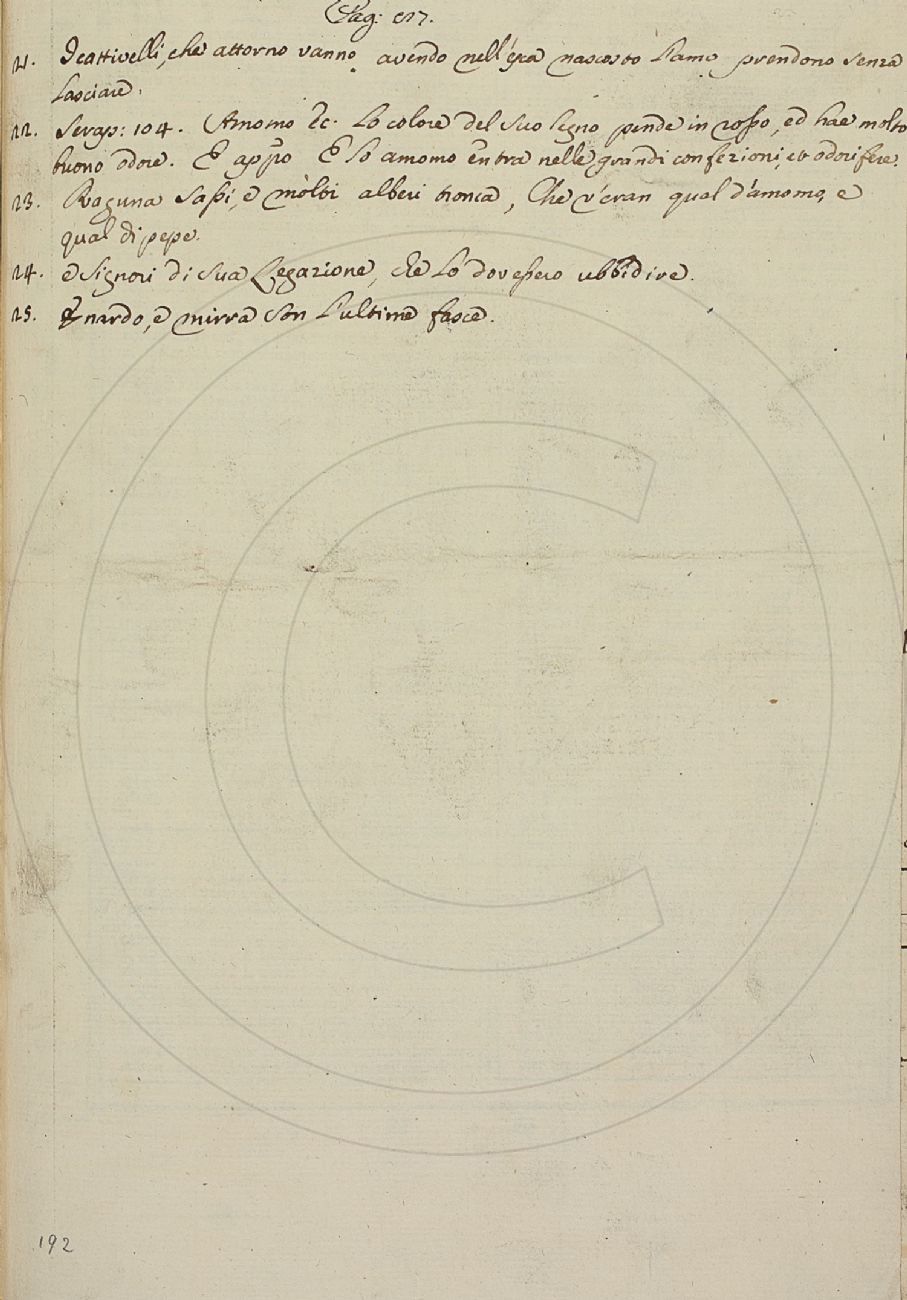 Pag: 517.
21. I cattivelli, che attorno vanno, avendo nell'ésca nascosto l'amo prendono senza
lasciare.
22. Serap: 104. Amomo &c. Lo colore del suo legno pende in rosso, ed hae molto
buono odore. E app̃o E lo amomo entra nelle grandi confezioni, et odorifere.
23. Raguna sassi, e molti alberi tronca, Che v'eran qual d'amomo, e
qual di pepe.
24. e Signori di sua Legazione, che lo dovessero ubbidire.
25. E nardo, e mirra son l'ultime fasce.
192